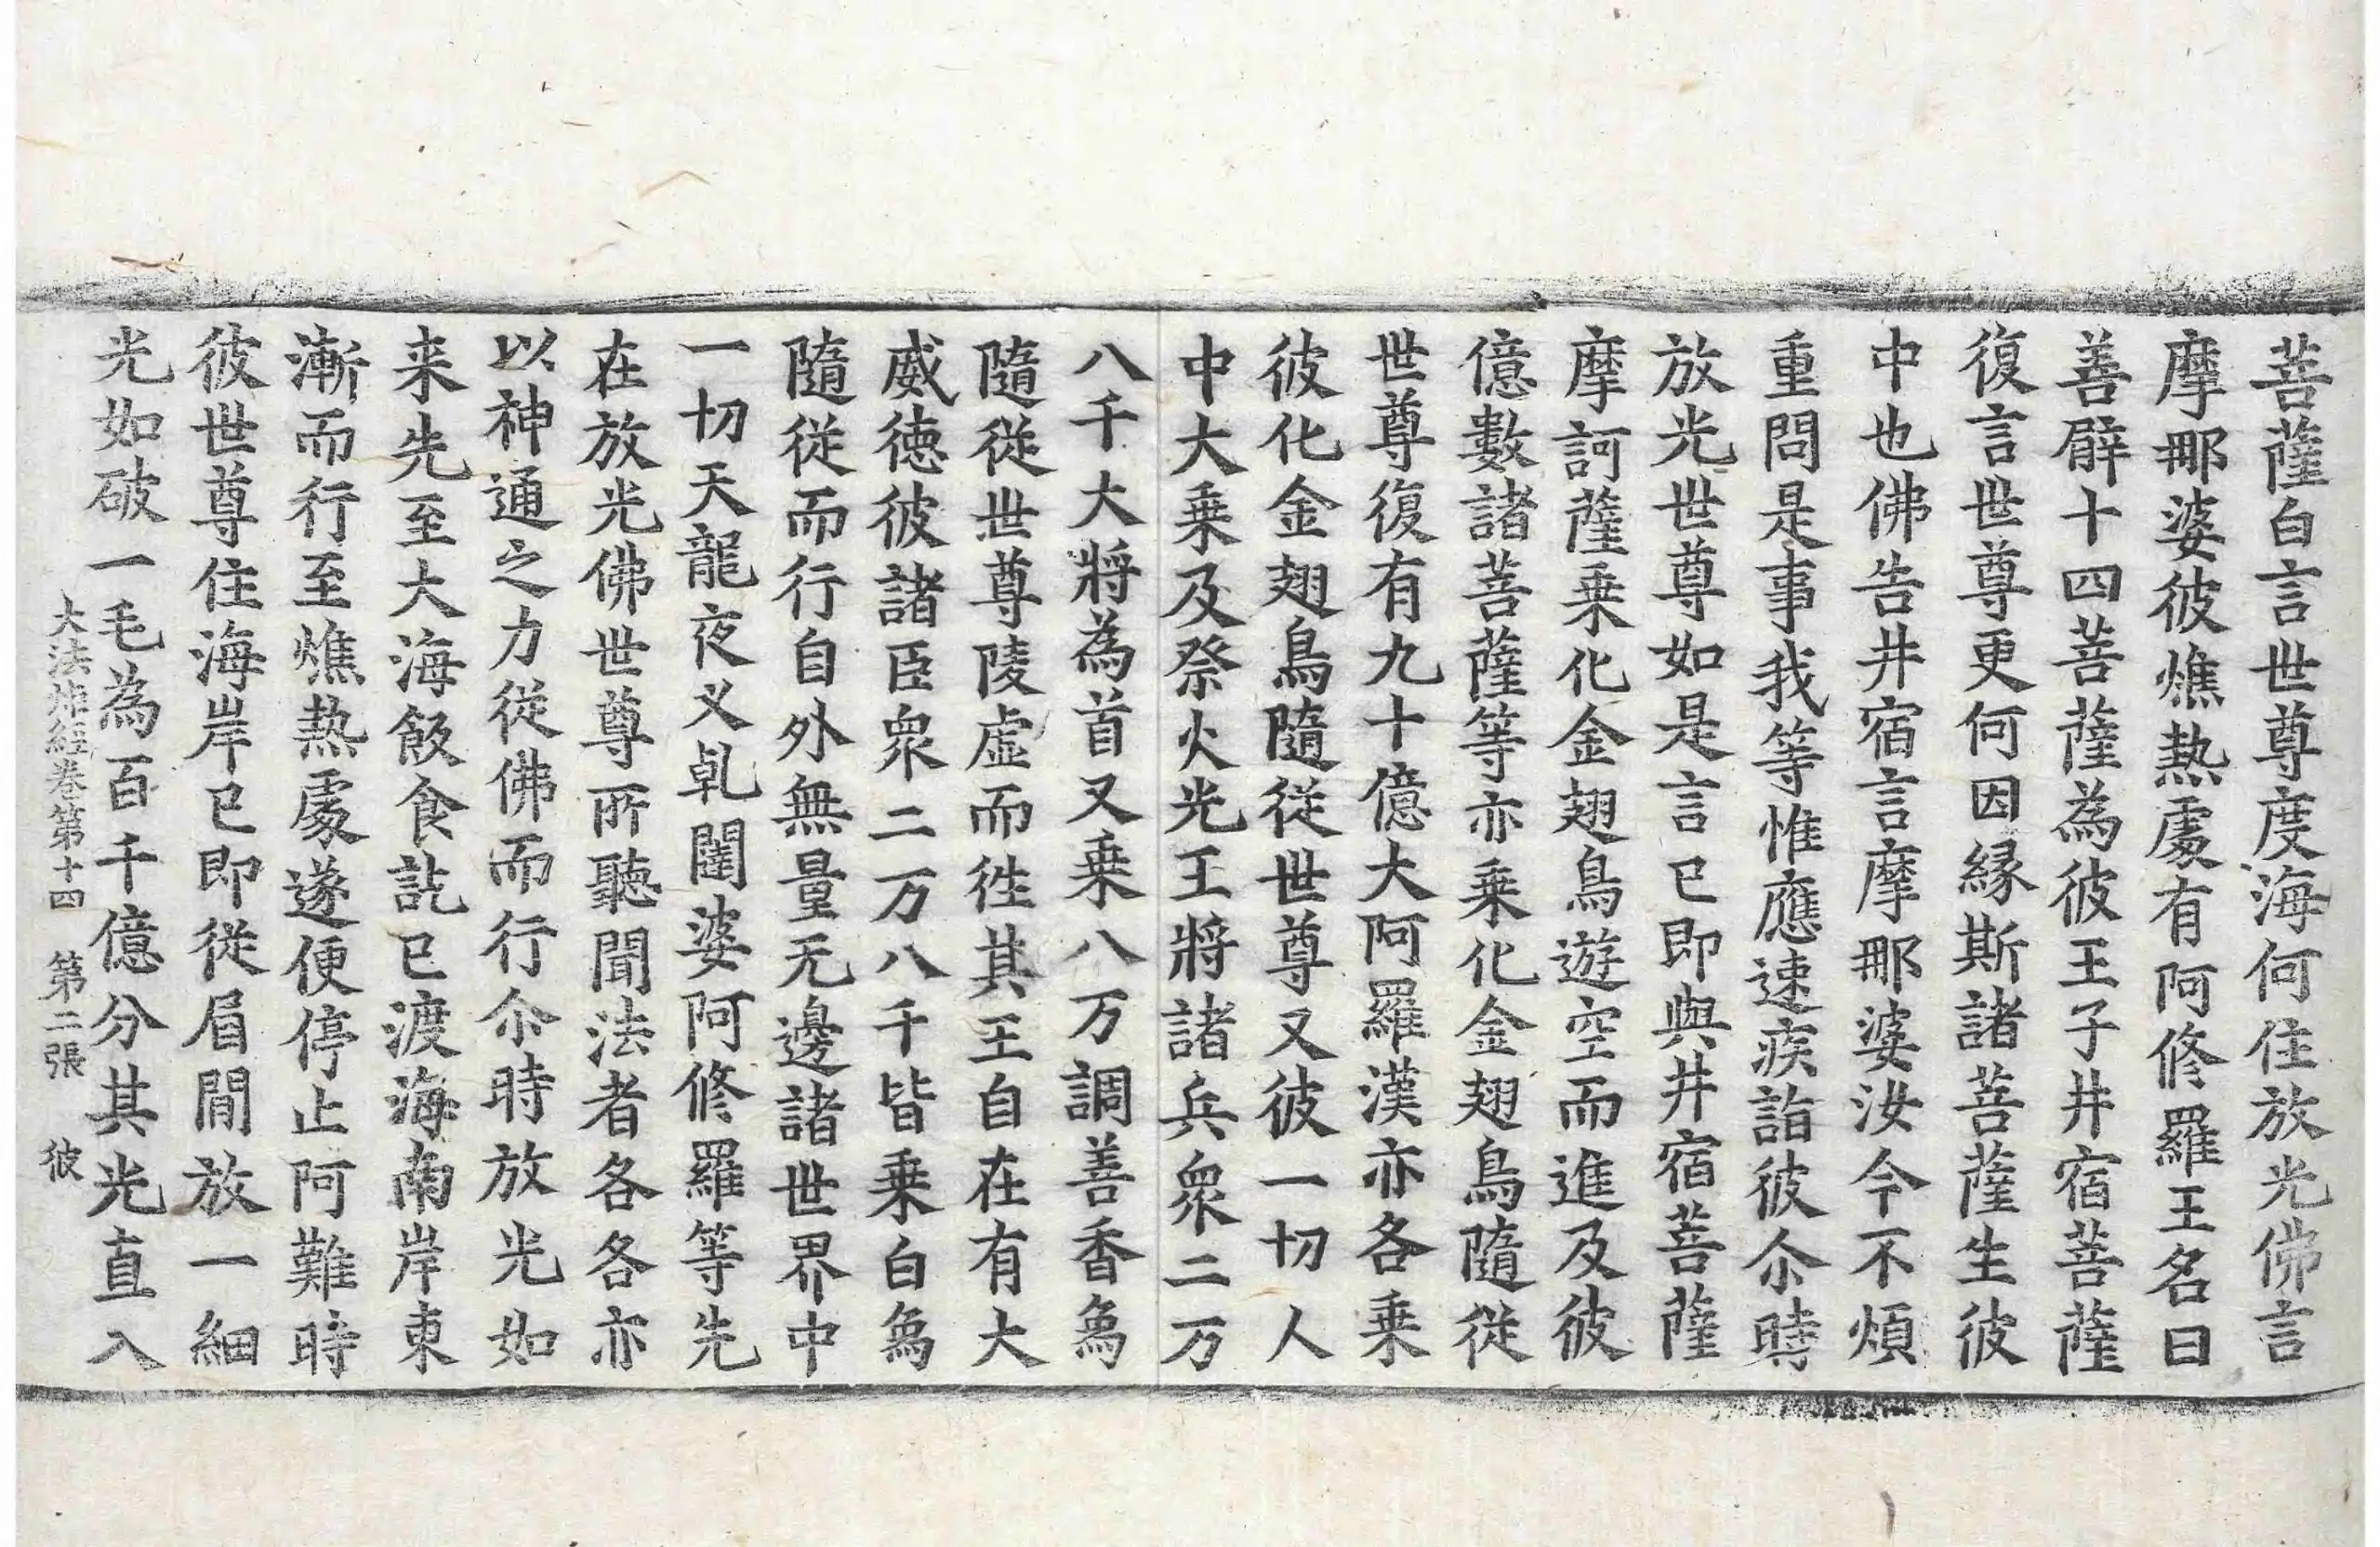 菩薩白言世尊度海何住放光佛言
摩那婆彼燋熱處有阿修羅王名曰
善臂十四菩薩為彼王子井宿菩薩
復言世尊更何因縁斯諸菩薩生彼
中也佛告井宿言摩那婆汝今不煩
重問是事我等惟應速疾詣彼尒時
放光世尊如是言已即與井宿菩薩
摩訶薩乗化金翅鳥遊空而進及彼
億數諸菩薩等亦乗化金翅鳥隨從
世尊復有九十億大阿羅漢亦各乗
彼化金翅鳥隨從世尊又彼一切人
中大乗及祭火光王將諸兵衆二万
八千大將為首又乗八万調善香為
隨從世尊陵虛而徃其王自在有大
威徳彼諸臣衆二万八千皆乗白為
隨從而行自外無量无邊諸世界中
一切天龍夜义乹闥婆阿修羅等先
在放光佛世尊所聽聞法者各各亦
以神通之力從佛而行尒時放光如
来先至大海飯食訖已渡海南岸東
漸而行至燋熱處遂便停止阿難時
彼世尊住海岸已即從眉間放一細
光如破一毛為百千億分其光直入
大法炬經卷第十四 第二張 彼